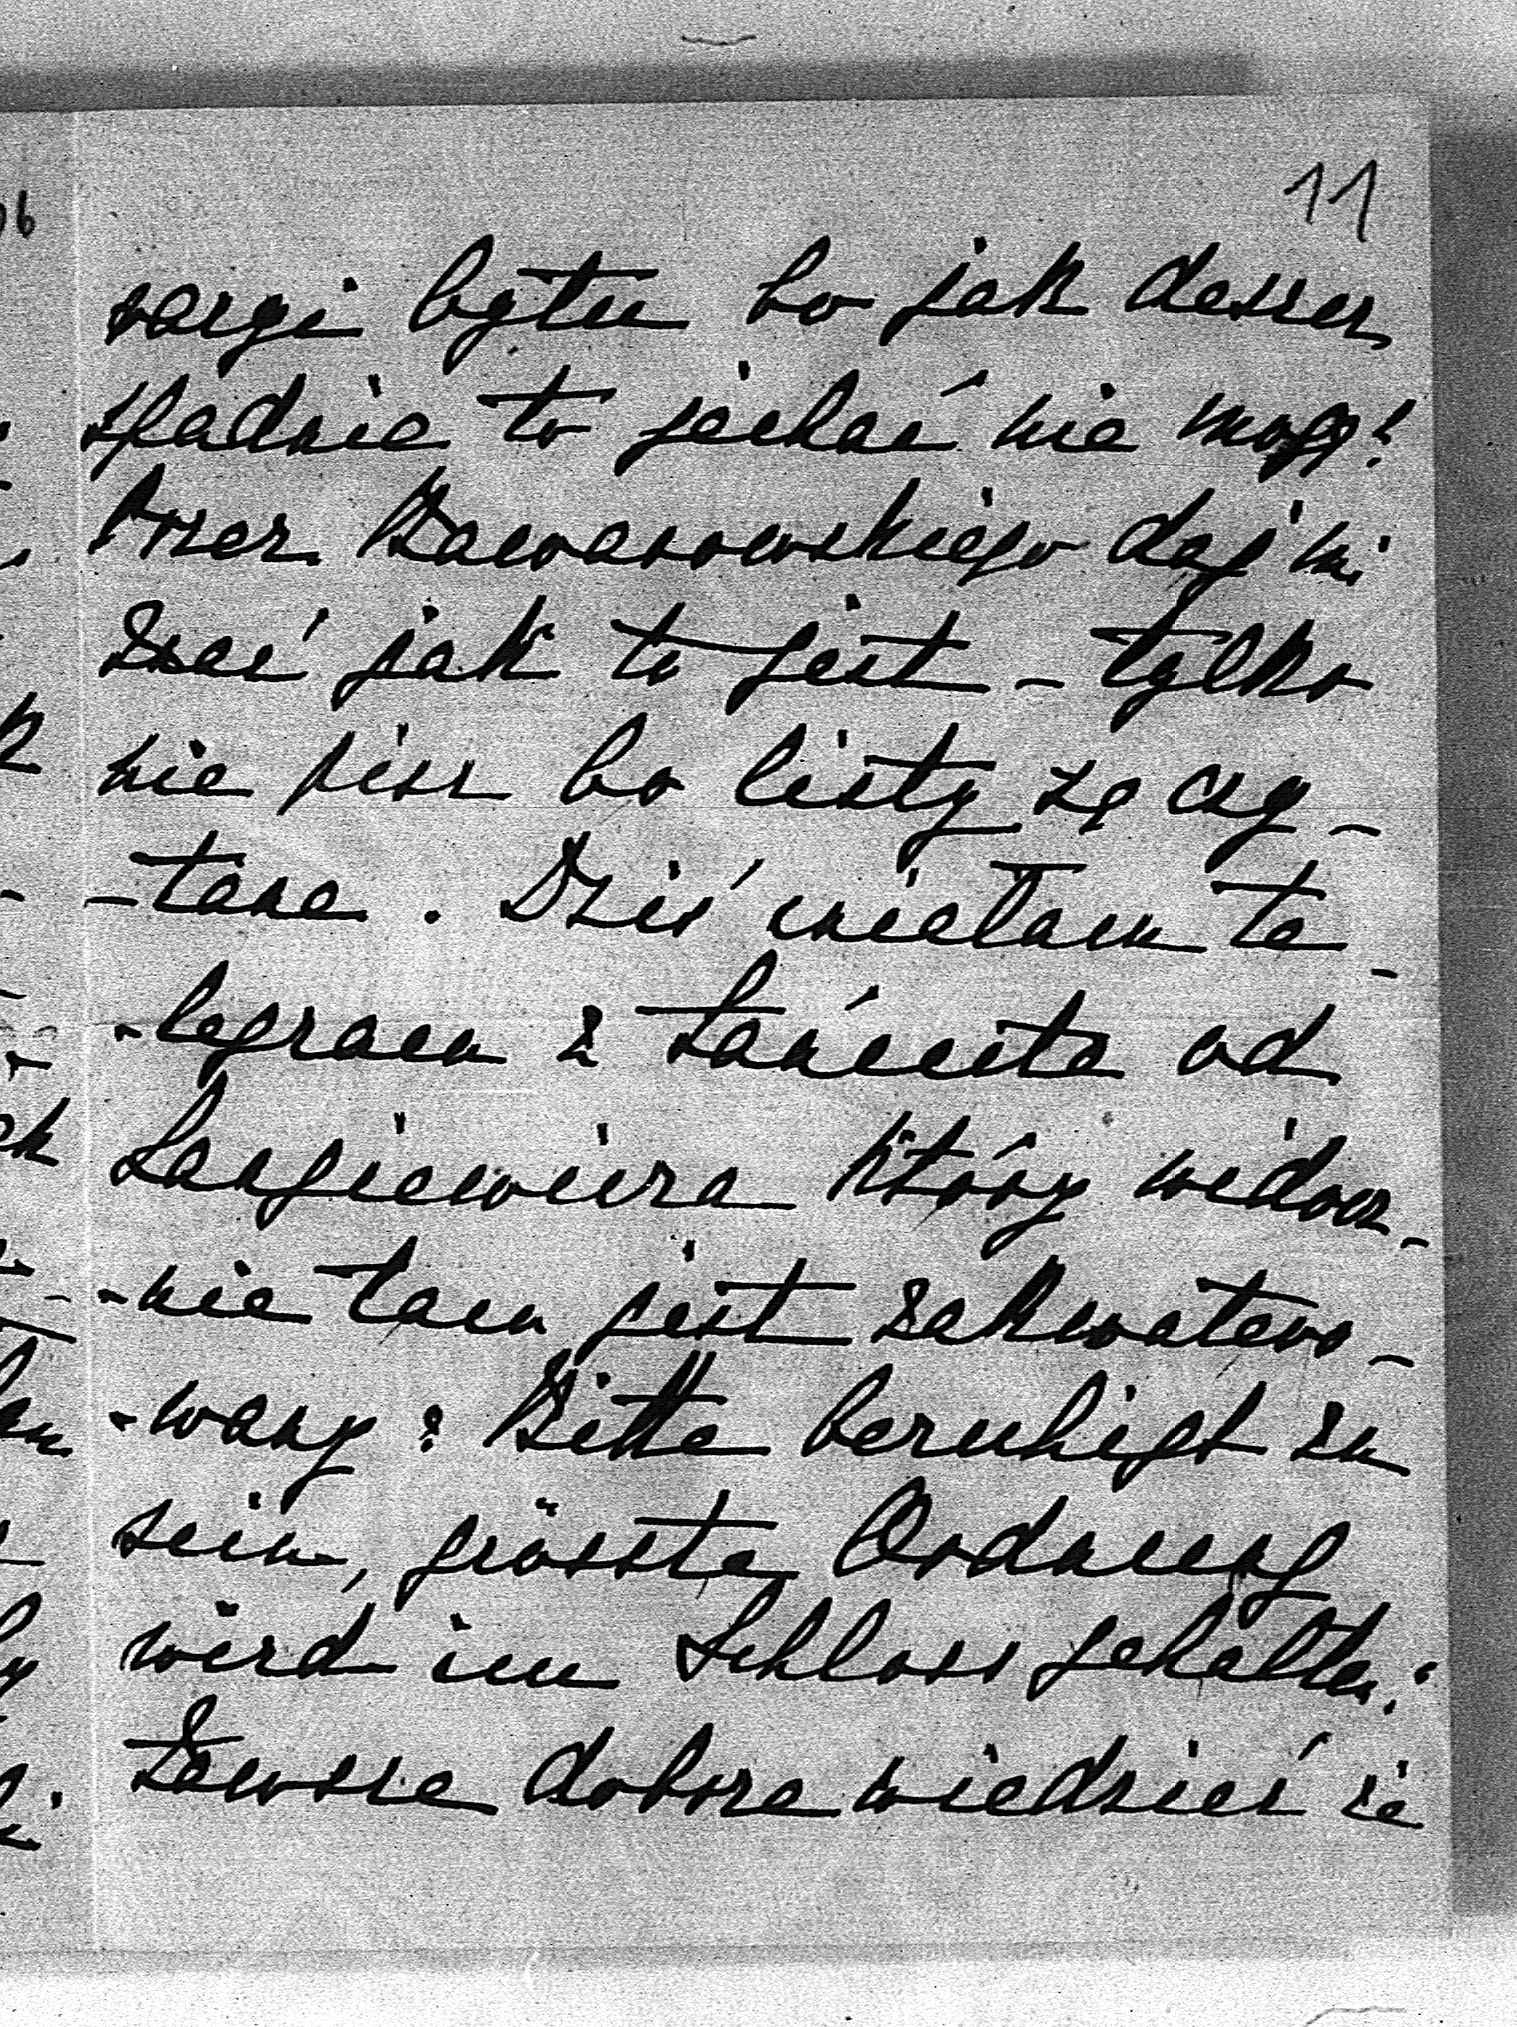 11
szosgi bytu bo jak deszcz
spadnie to jechać nie mogę!
Przez Bawarowskiego daj mi
znać jak to jest – tylko
nie pisz bo listy są czy-
-tane. Dziś miałam te-
-legram z Łańcuta od
Langiewicza który widocz-
-nie tam jest zakwatero-
-wany: Bitte beruhigt zu
sein, grösste Ordnung
wird im Schloss gehalten."
Zawsze dobrze wiedzieć że